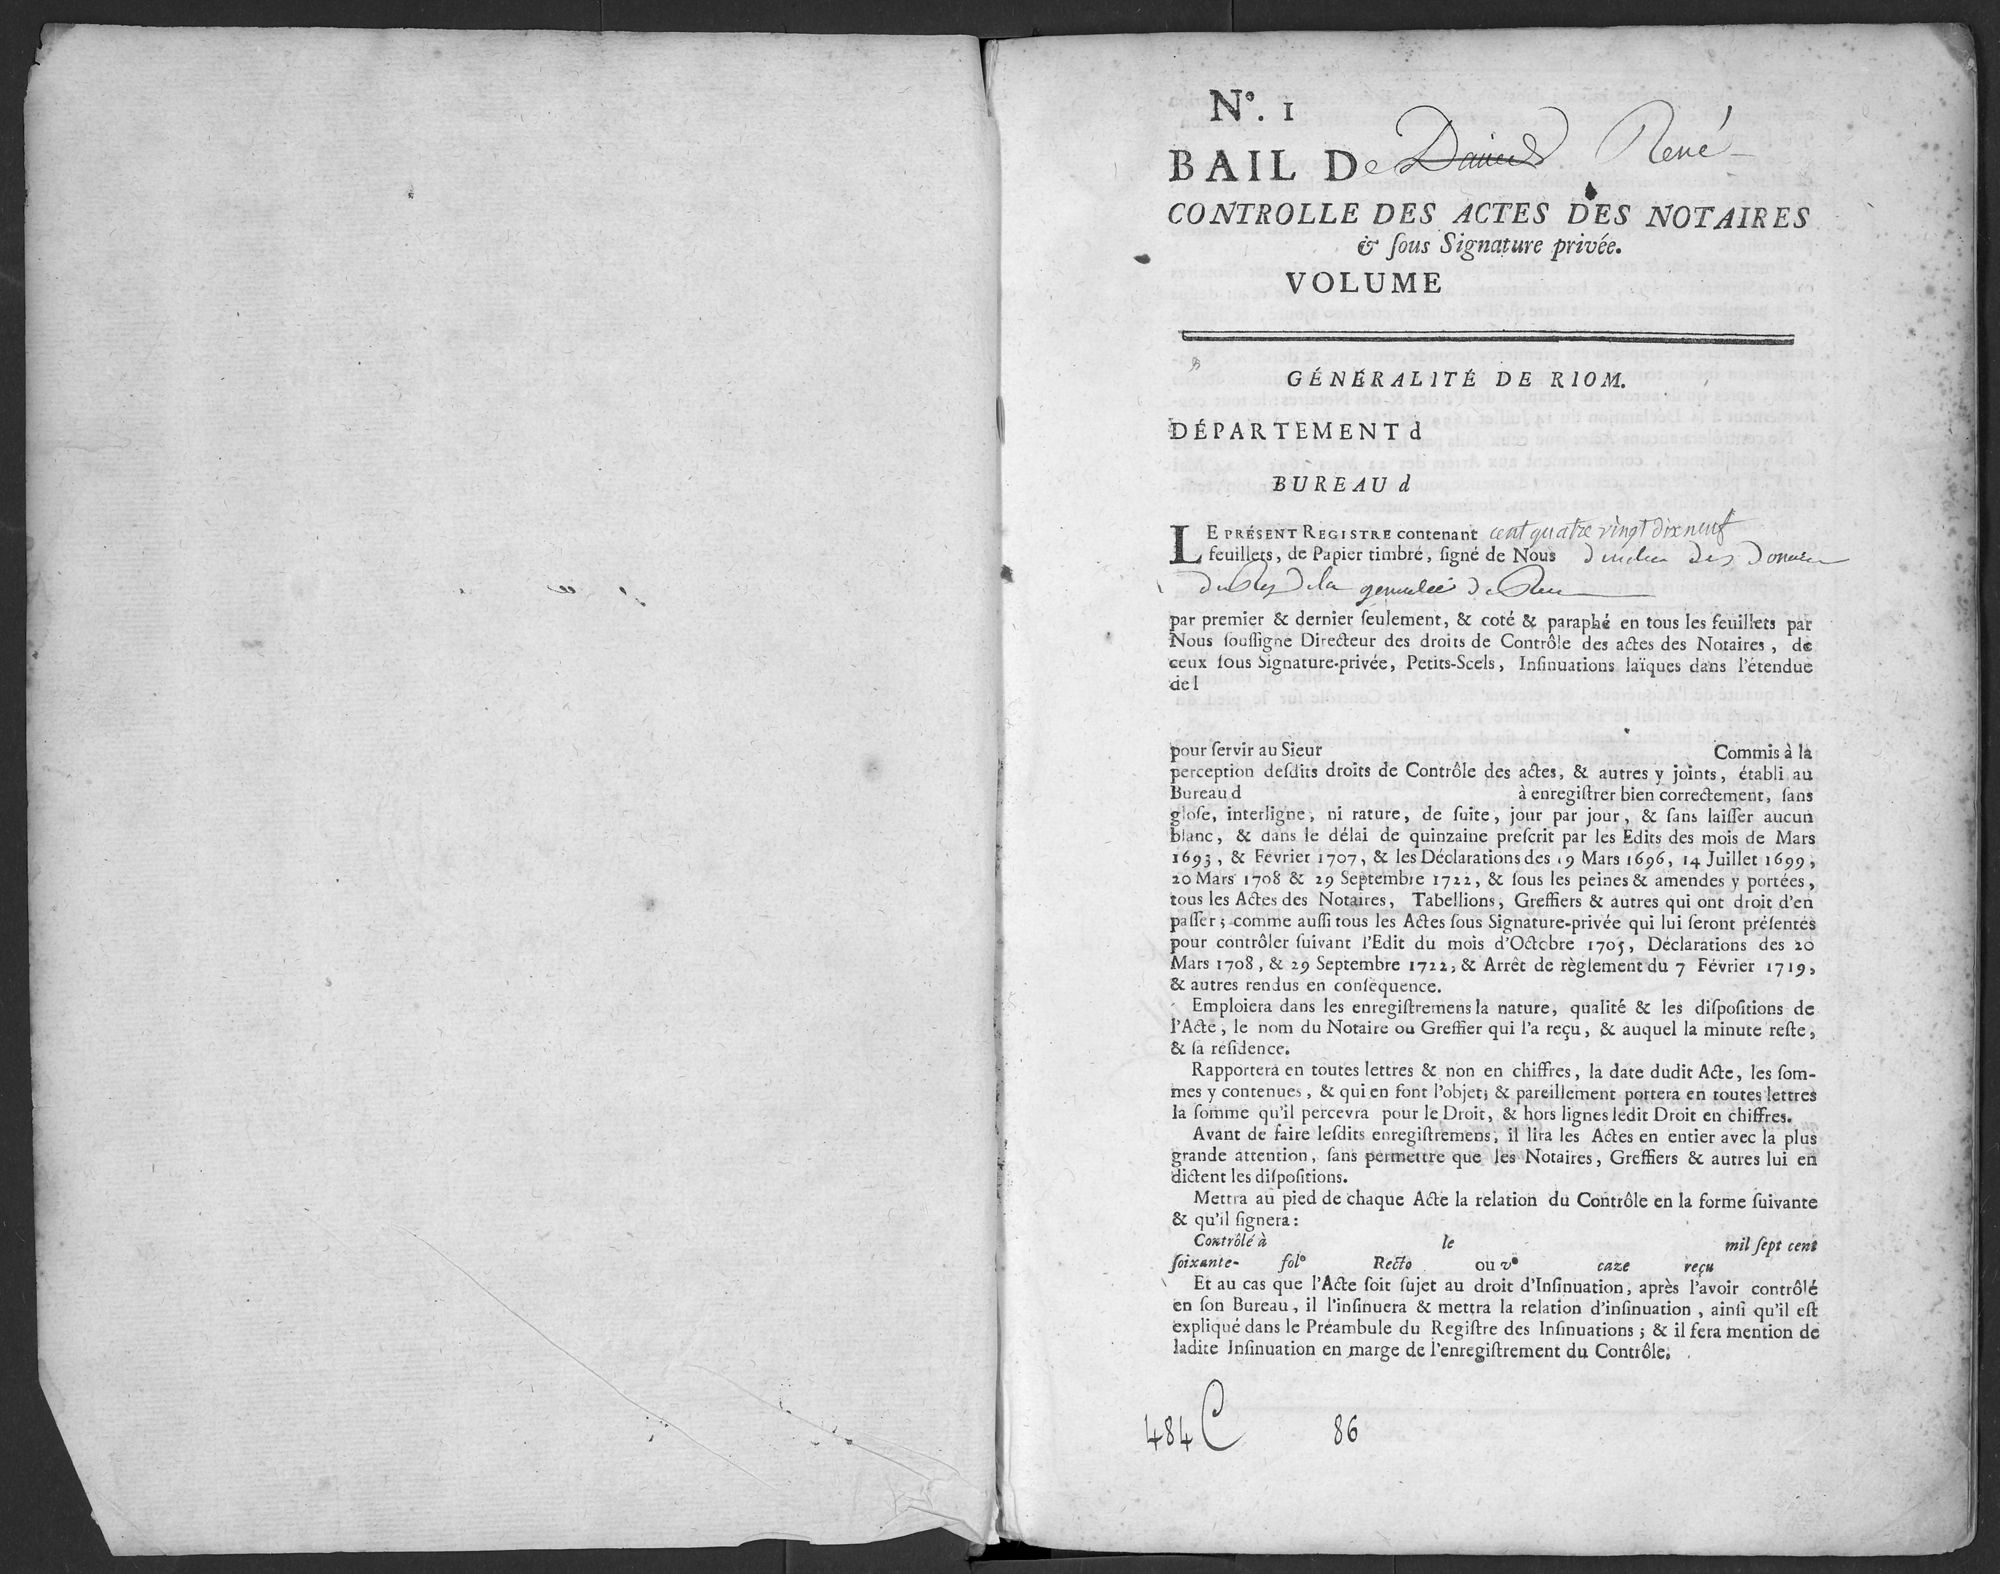 Nº. 1
BAIL De David René
CONTROLLE DES ACTES DES NOTAIRES
& ſous Signature privée.
VOLUME
GÉNÉRALITÉ DE RIOM.
DÉPARTEMENT d
BUREAU d
LE PRÉSENT REGISTRE contenant cent quatre vingt dix neuf
feuillets, de Papier timbré, ſigné de Nous
par premier & dernier ſeulement, & coté & paraphé en tous les feuillets par
Nous ſouſſigné Directeur des droits de Contrôle des actes des Notaires, de
ceux ſous Signature-privée, Petits-Scels, Inſinuations laïques dans l'étendue
de l
pour ſervir au Sieur Commis à la
perception deſdits droits de Contrôle des actes, & autres y joints, établi au
Bureau d à enregiſtrer bien correctement, ſans
gloſe, interligne, ni rature, de ſuite, jour par jour, & ſans laiſſer aucun
blanc, & dans le délai de quinzaine preſcrit par les Edits des mois de Mars
1693, & Février 1707, & les Déclarations des 19 Mars 1696, 14 Juillet 1699,
20 Mars 1708 & 29 Septembre 1722, & ſous les peines & amendes y portées,
tous les Actes des Notaires, Tabellions, Greffiers & autres qui ont droit d'en
paſſer; comme auſſi tous les Actes ſous Signature-privée qui lui ſeront préſentés
pour contrôler ſuivant l'Edit du mois d'Octobre 1705, Déclarations des 20
Mars 1708, & 29 Septembre 1722, & Arrêt de règlement du 7 Février 1719,
& autres rendus en conſéquence.
Emploiera dans les enregiſtremens la nature, qualité & les diſpoſitions de
l'Acte, le nom du Notaire ou Greffier qui l'a reçu, & auquel la minute reſte,
& ſa réſidence.
Rapportera en toutes lettres & non en chiffres, la date dudit Acte, les ſom-
mes y contenues, & qui en font l'objet; & pareillement portera en toutes lettres
la ſomme qu'il percevra pour le Droit, & hors lignes ledit Droit en chiffres.
Avant de faire leſdits enregiſtremens, il lira les Actes en entier avec la plus
grande attention, ſans permettre que les Notaires, Greffiers & autres lui en
dictent les diſpoſitions.
Mettra au pied de chaque Acte la relation du Contrôle en la forme ſuivante
& qu'il ſignera:
Contrôlé à le mil ſept cent
ſoixante- folº Recto ou vº caze reçu
Et au cas que l'Acte ſoit ſujet au droit d'Inſinuation, après l'avoir contrôlé
en ſon Bureau, il l'inſinuera & mettra la relation d'inſinuation, ainſi qu'il eſt
expliqué dans le Préambule du Regiſtre des Inſinuations; & il fera mention de
ladite Inſinuation en marge de l'enregiſtrement du Contrôle.
484 C 86